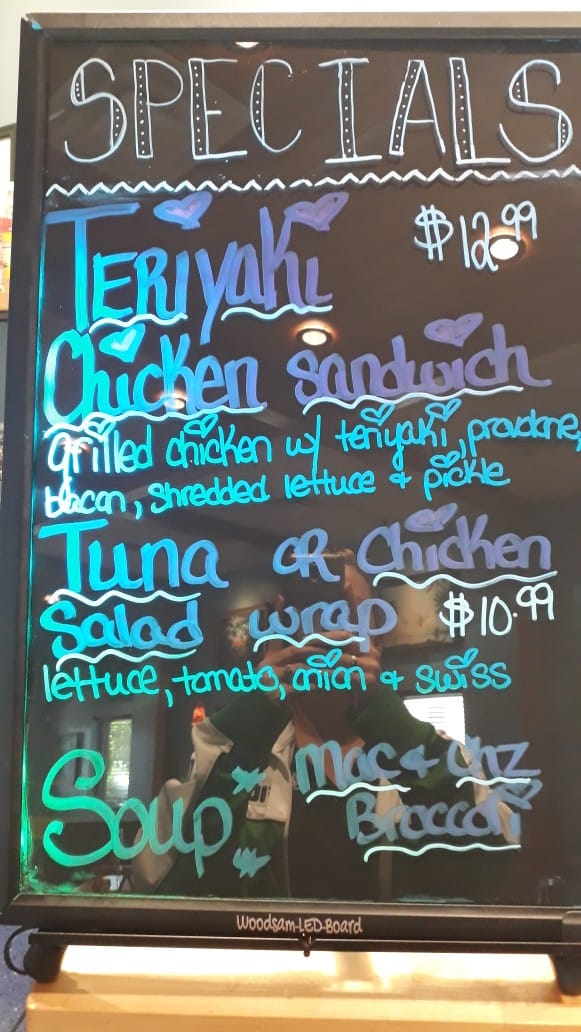 SPECIALS
TERIyaKi $12.99
Chicken sandwich
grilled chicken w/ teriyaki, provolone,
bacon, shredded lettuce & pickle
Tuna OR Chicken
Salad wrap $10.99
lettuce, tomato, onion & swiss
Soup * Mac & Chz
* Broccoli
Woodsam-LED-Board